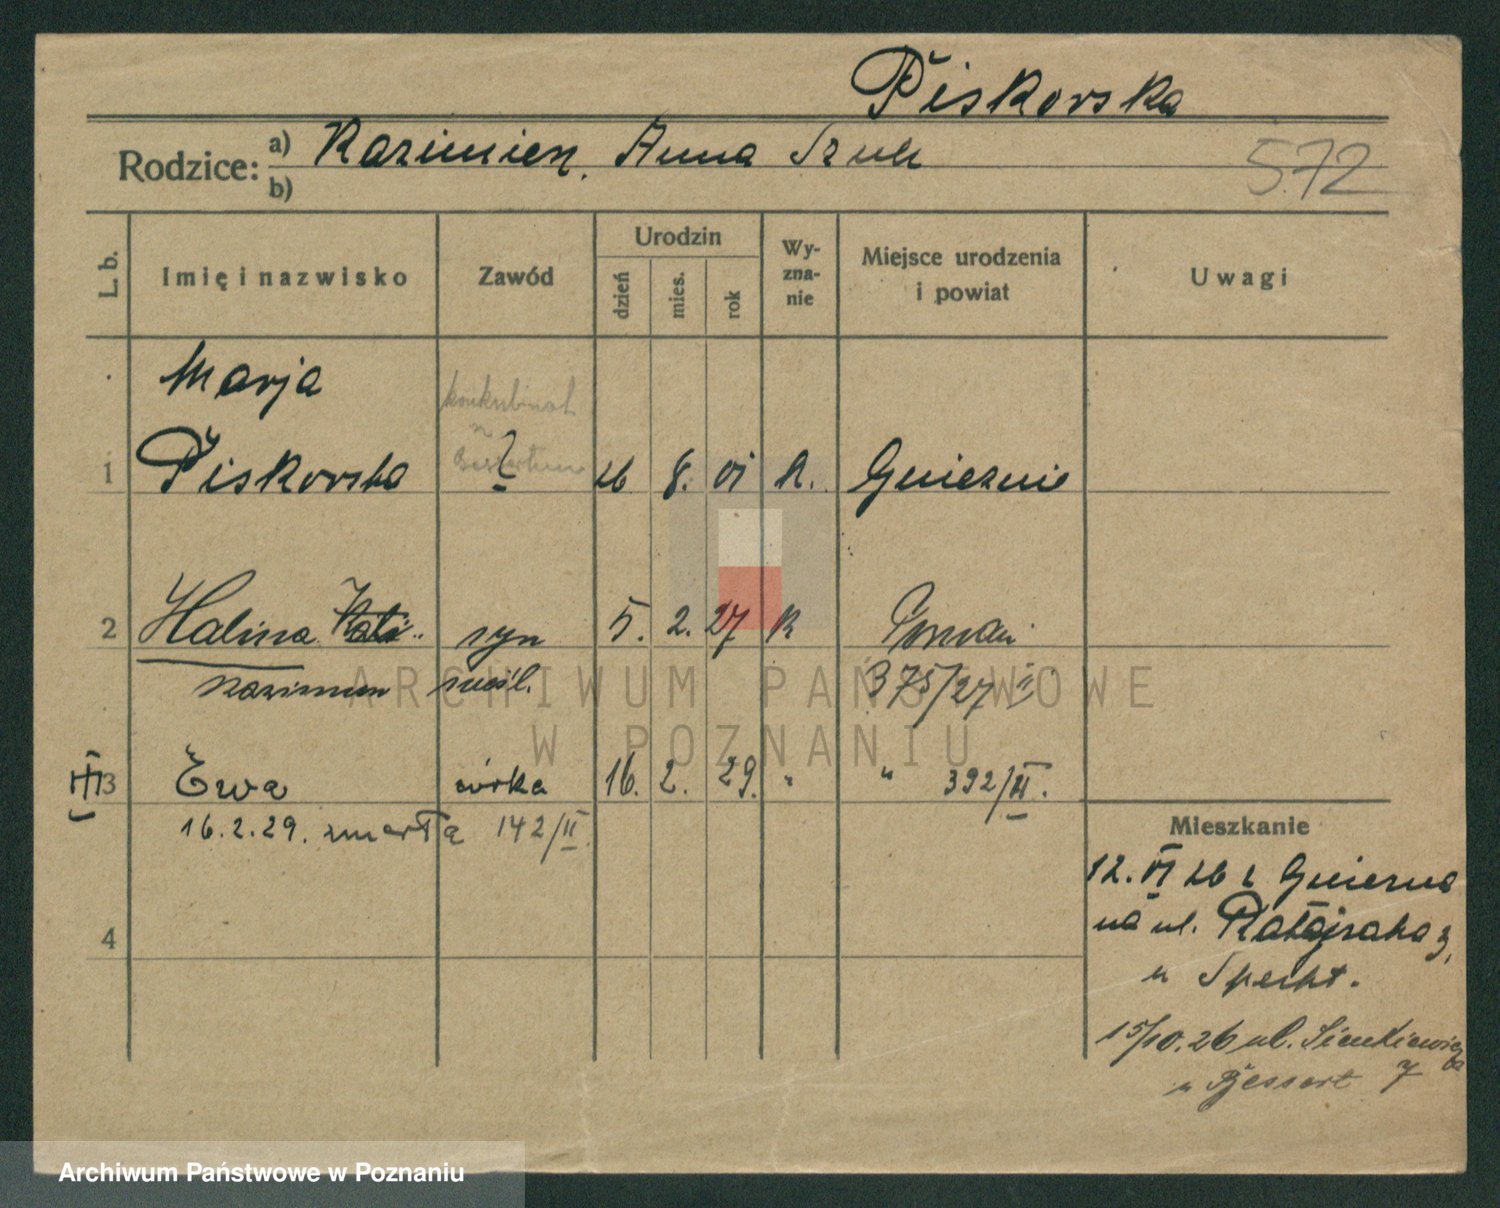 Piskorska
Rodzice: a) Kazimierz, Anna Szulc
b)
572
L. b.
Imię i nazwisko
Zawód
Urodzin
dzień
mies.
rok
Wy-
zna-
nie
Miejsce urodzenia
i powiat
Uwagi
Marja
konkubinat
z
1 Piskorska ? 26 8. 01 R. Gnieznie
2 Halina 5. 2. 27 R Poznań
Kazimierz nieśl. 375/27 II
syn
III 3 Ewa córka 16. 2. 29. " " 392/II.
16.2.29. zmarła 142/II.
4
Mieszkanie
12. VI 26 z Gniezna
na ul. Ratajczaka 3,
u Specht.
15/10.26 ul. Sienkiewicza 7
u Bessert
ARCHIWUM PAŃSTWOWE
W POZNANIU
Archiwum Państwowe w Poznaniu